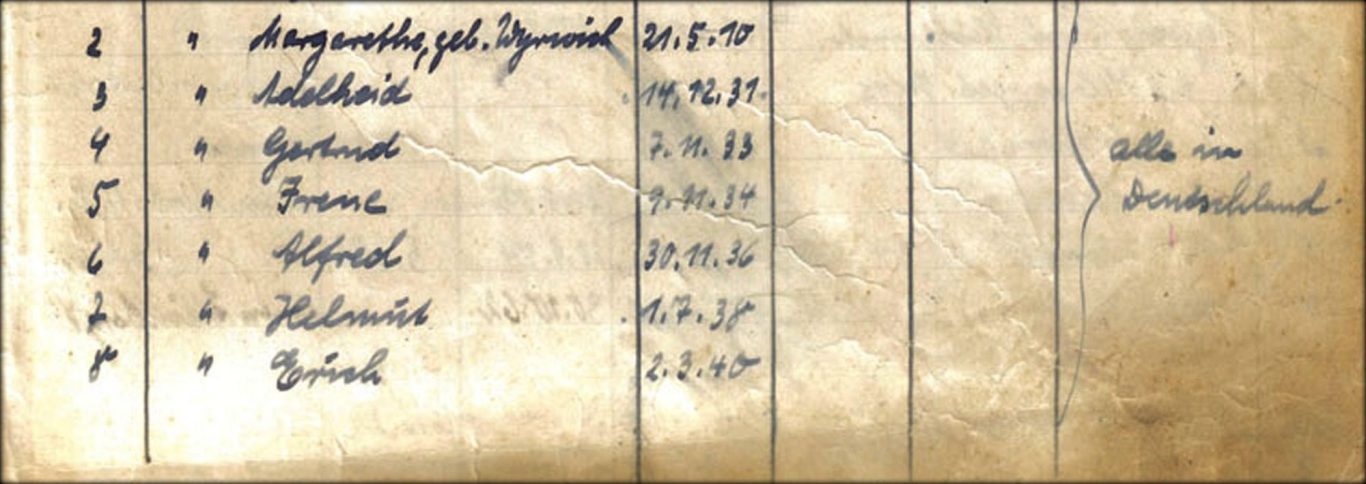 2 " Margarethe, geb. Wyrwich 21.5.10
3 " Adelheid 14.12.31.
4 " Gertrud 7.11.33
5 " Irene 9.11.34
6 " Alfred 30.11.36
7 " Helmut 1.7.38
8 " Erich 2.3.40
alle in
Deutschland